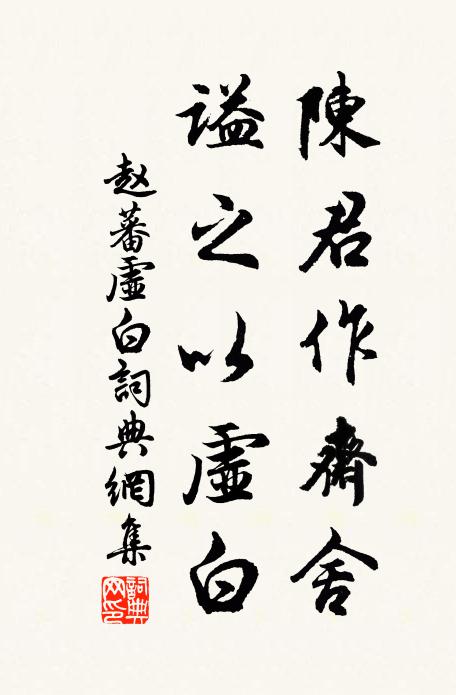 陳君作齋舍
謚之以虛白
赵蕃虛白詞典網集
詞典网印